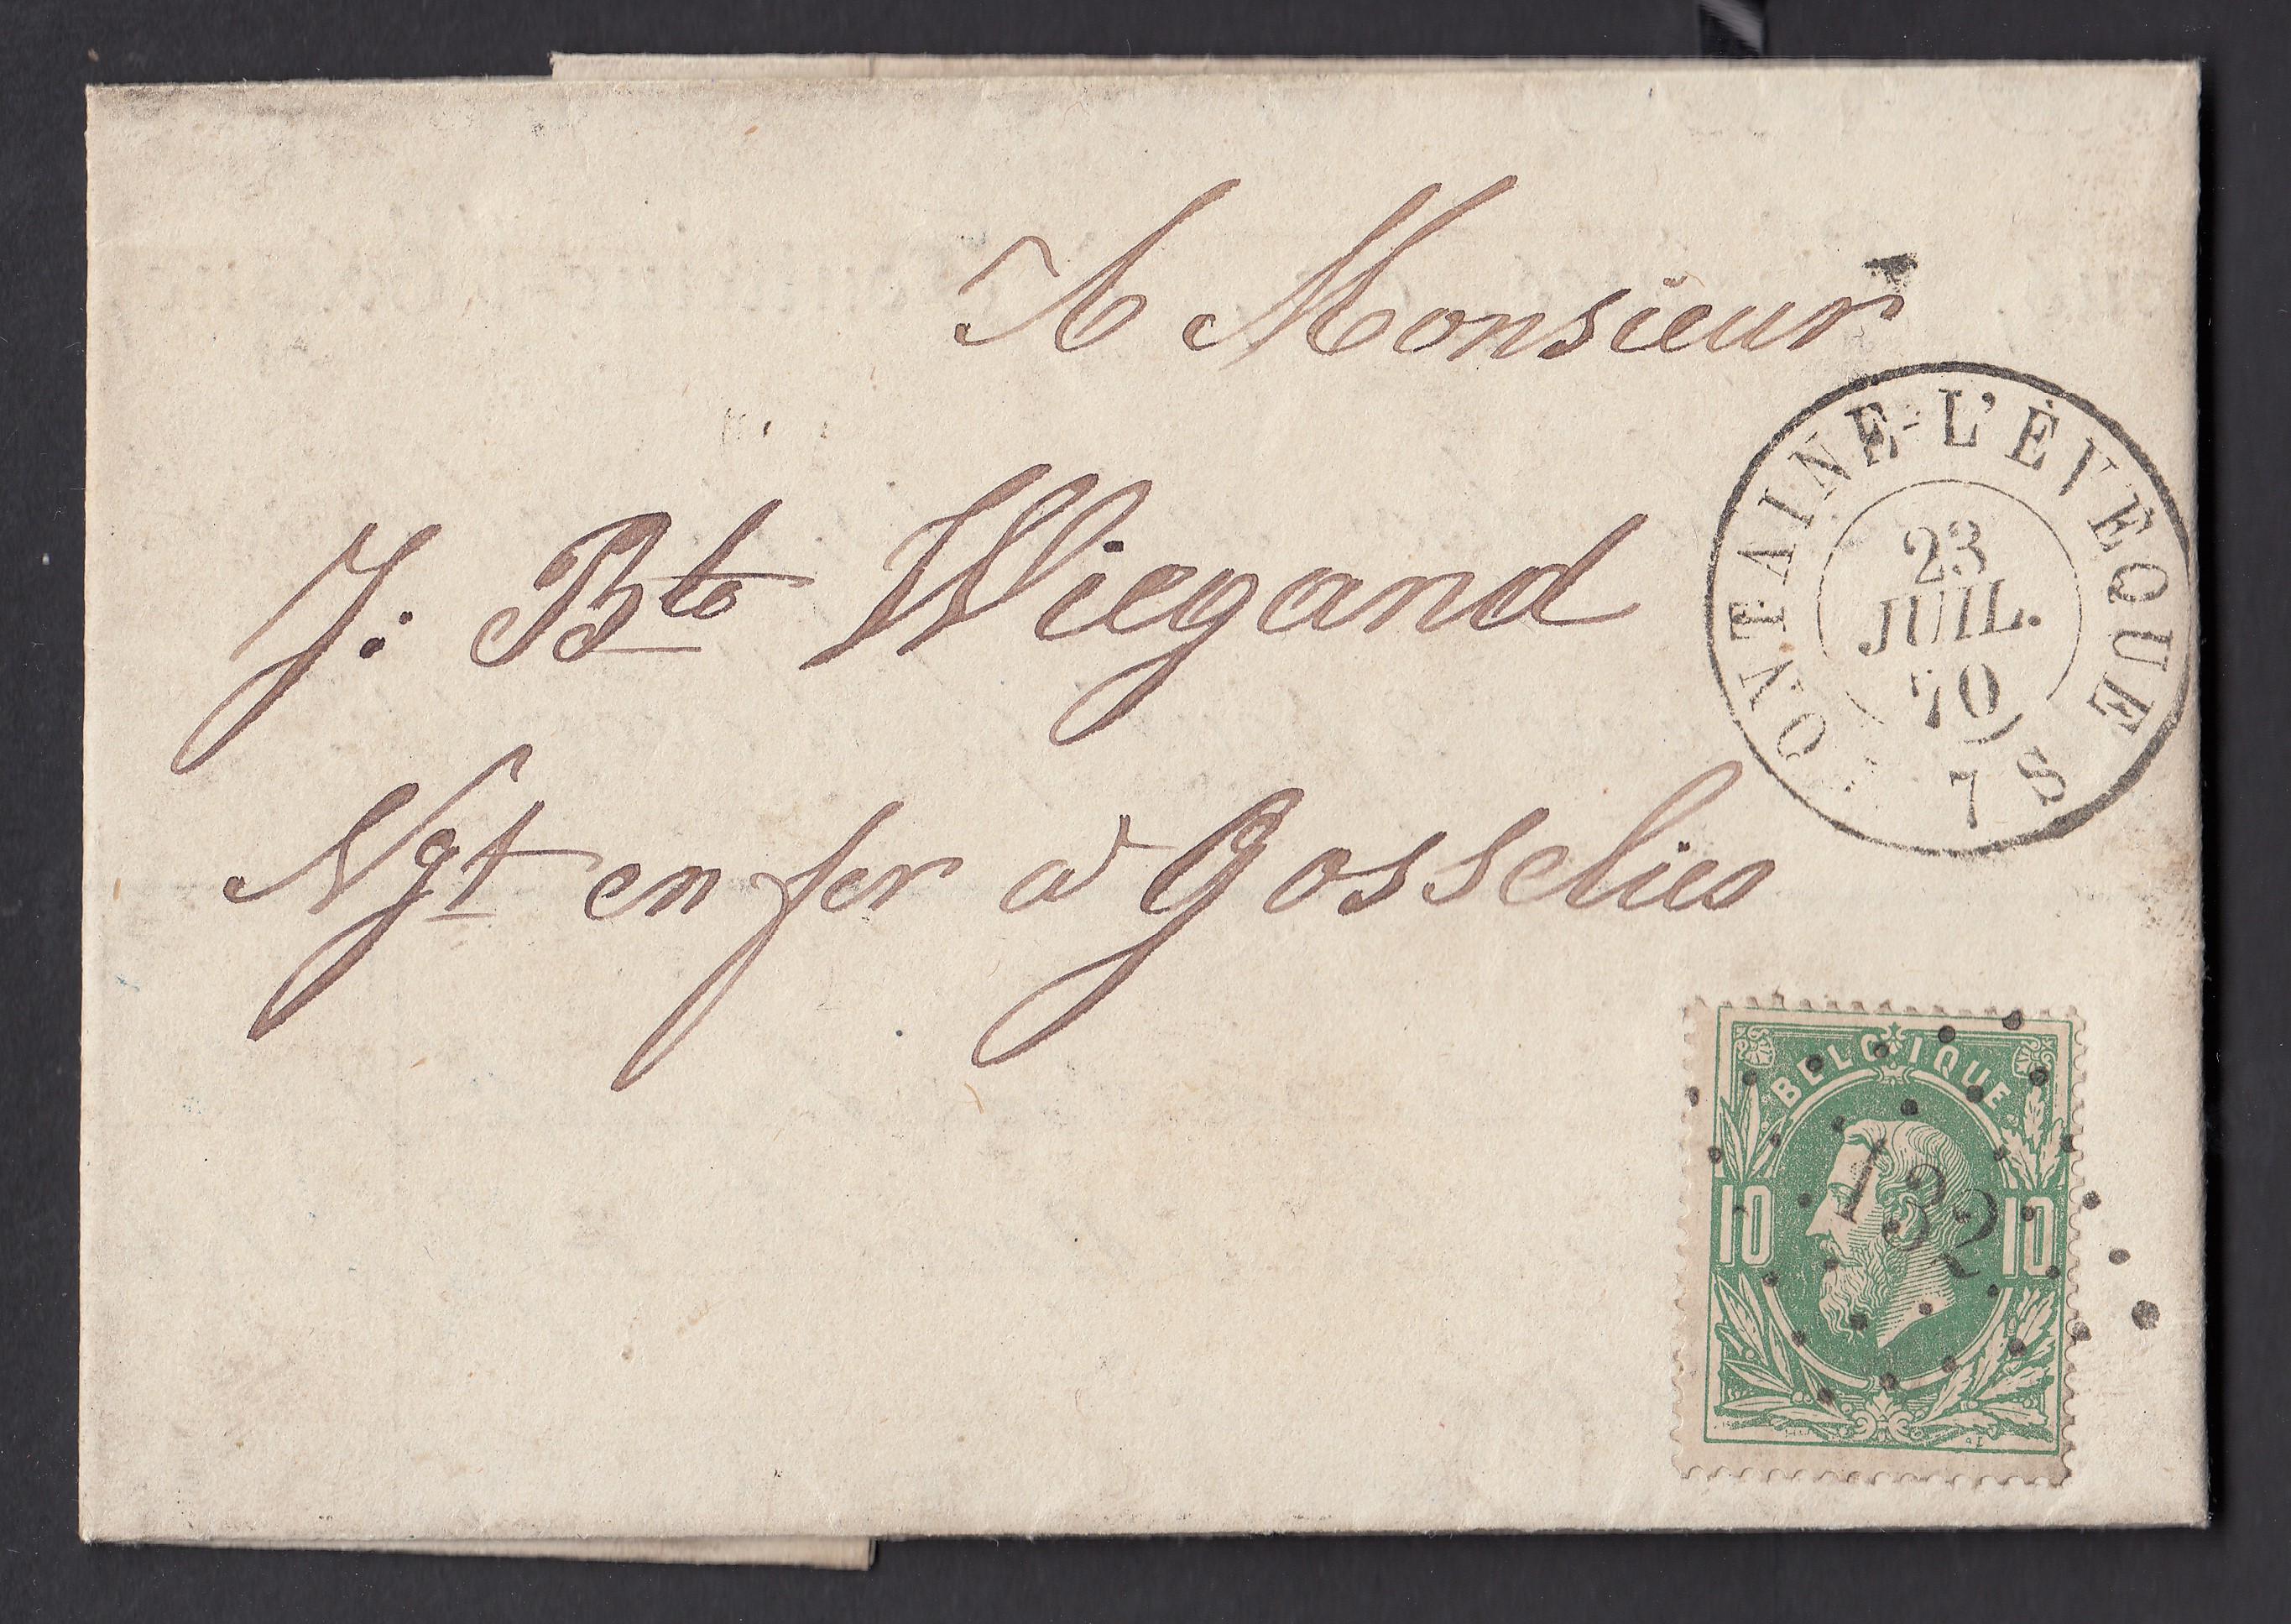 A Monsieur
J: Bte Wiegand
Ngt en fer à Gosselies
ONTAINE-L'ÉVEQUE
23
JUIL.
70
7 S
BELGIQUE
10 10
132